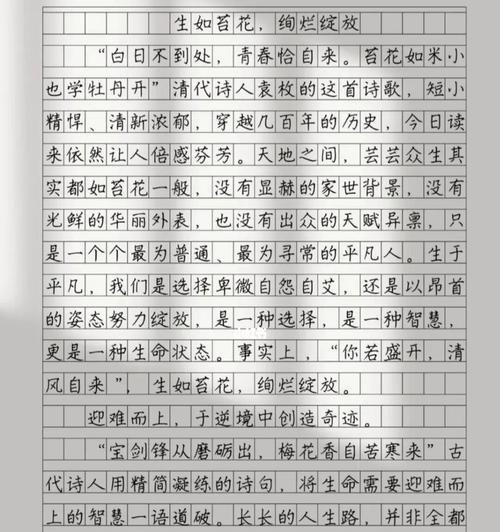 生如苔花，绚烂绽放
“白日不到处，青春恰自来。苔花如米小
也学牡丹开”清代诗人袁枚的这首诗歌，短小
精悍、清新浓郁，穿越几百年的历史，今日读
来依然让人倍感芬芳。天地之间，芸芸众生其
实都如苔花一般，没有显赫的家世背景，没有
光鲜的华丽外表，也没有出众的天赋异禀，只
是一个个最为普通、最为寻常的平凡人。生于
平凡，我们是选择卑微自怨自艾，还是以昂首
的姿态努力绽放，是一种选择，是一种智慧，
更是一种生命状态。事实上，“你若盛开，清
风自来”，生如苔花，绚烂绽放。
迎难而上，于逆境中创造奇迹。
“宝剑锋从磨砺出，梅花香自苦寒来”古
代诗人用精简凝练的诗句，将生命需要迎难而
上的智慧一语道破。长长的人生路，并非全都